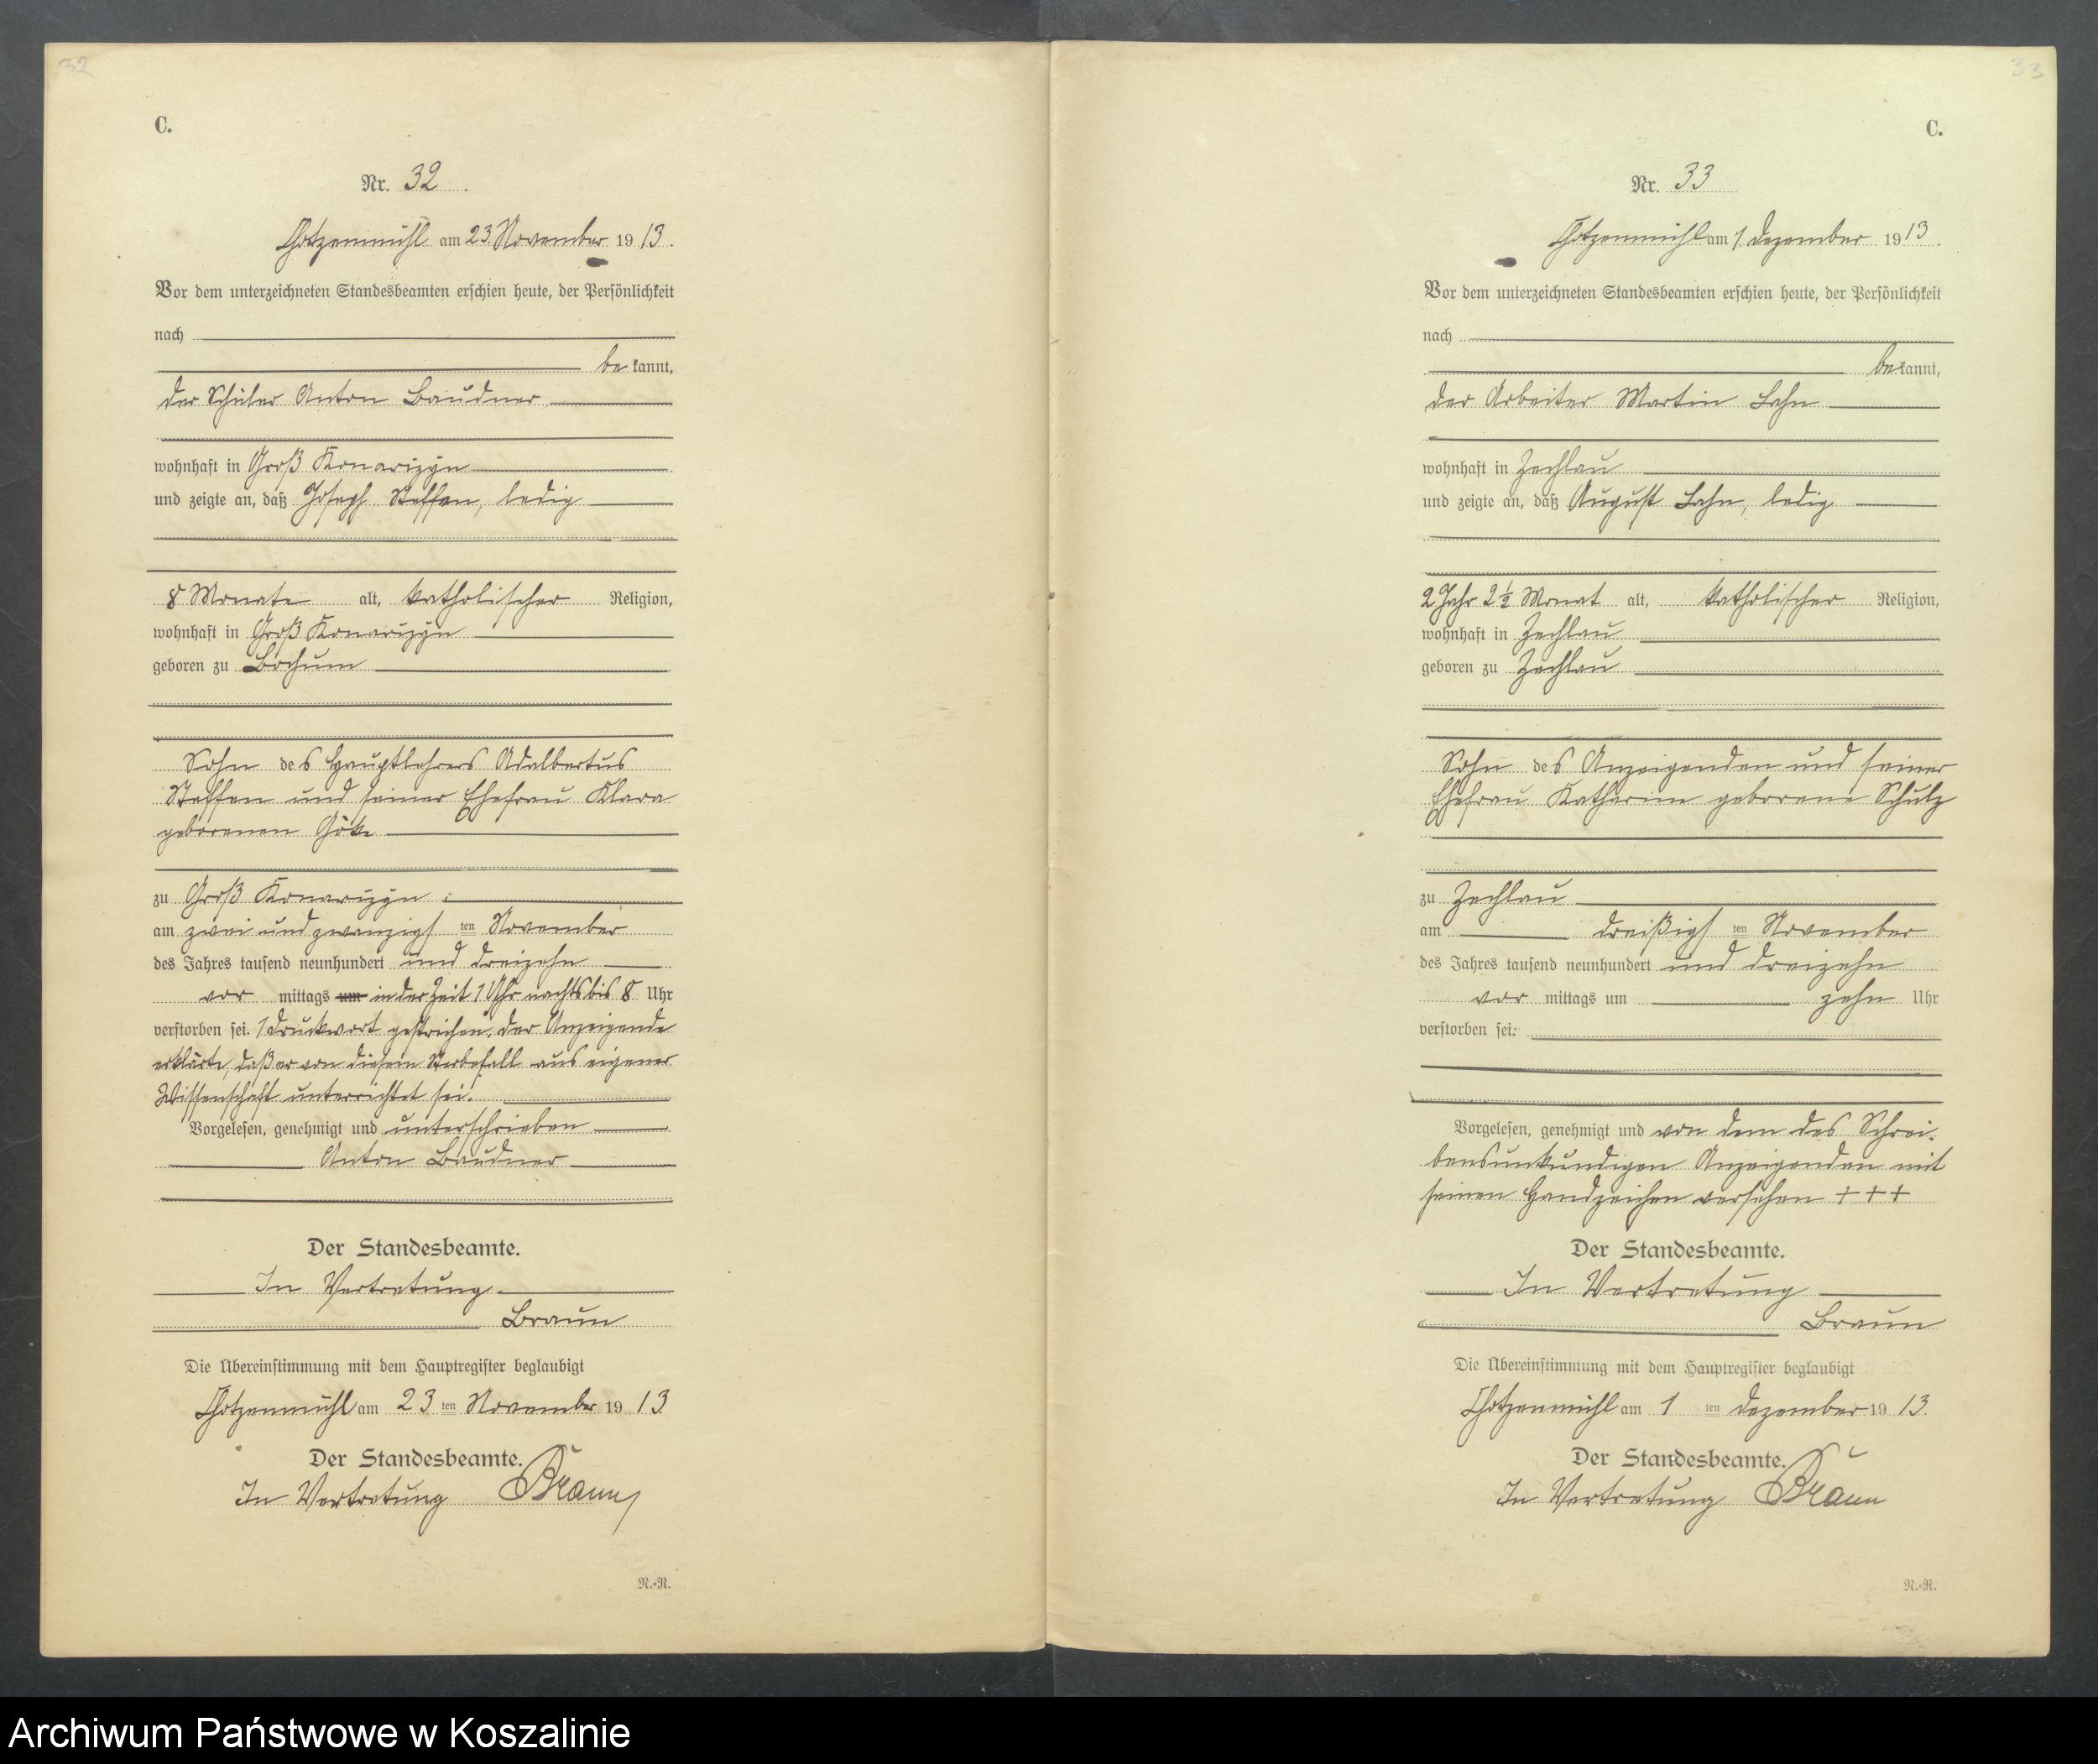 32
C.
Nr. 32
Chotzenmühl am 23 November 1913.
Vor dem unterzeichneten Standesbeamten erschien heute, der Persönlichkeit
nach
be kannt,
der Schüler Anton Baudner
wohnhaft in Groß Konarizyn
und zeigte an, daß Joseph Steffen, ledig
8 Monate alt, katholischer Religion,
wohnhaft in Groß Konarizyn
geboren zu Bochum
Sohn des Hauptlehrers Adalbertus
Steffen und seiner Ehefrau Klara
geborenen
zu Groß Konarizyn
am zwei und zwanzigsten November
des Jahres tausend neunhundert und dreizehn
vor mittags um in der Zeit 1 Uhr nachts bis 8 Uhr
verstorben sei. 1 Druckwort gestrichen. Der Anzeigende
erklärte, daß er von diesem Sterbefall aus eigener
Wissenschaft unterrichtet sei.
Vorgelesen, genehmigt und unterschrieben
Anton Baudner
Der Standesbeamte.
In Vertretung
Braun
Die Übereinstimmung mit dem Hauptregister beglaubigt
Chotzenmühl am 23 ten November 1913.
Der Standesbeamte.
In Vertretung Braun
N.-R.
33
C.
Nr. 33
Chotzenmühl am 1 Dezember 1913.
Vor dem unterzeichneten Standesbeamten erschien heute, der Persönlichkeit
nach
bekannt,
der Arbeiter Martin Lahn
wohnhaft in Zechlau
und zeigte an, daß August Lahn, ledig
2 Jahr 2½ Monat alt, katholischer Religion,
wohnhaft in Zechlau
geboren zu Zechlau
Sohn des Anzeigenden und seiner
Ehefrau Katharina geborene Schulz
zu Zechlau
am dreißigsten November
des Jahres tausend neunhundert und dreizehn
vor mittags um zehn Uhr
verstorben sei.
Vorgelesen, genehmigt und von dem des Schrei-
bensunkundigen Anzeigenden mit
seinen Handzeichen versehen +++
Der Standesbeamte.
In Vertretung
Braun
Die Übereinstimmung mit dem Hauptregister beglaubigt
Chotzenmühl am 1 ten Dezember 1913.
Der Standesbeamte.
In Vertretung Braun
N.-R.
Archiwum Państwowe w Koszalinie